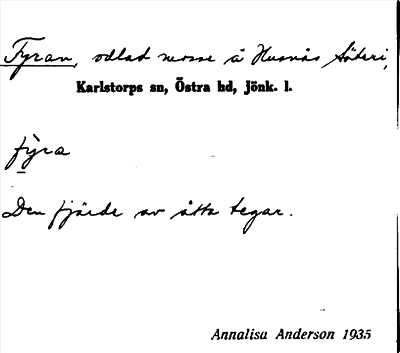 Fyran, odlad mosse å Husnäs Säteri,
Karlstorps sn, Östra hd, Jönk. l.
fỳra
Den fjärde av åtta tegar.
Annalisa Anderson 1935